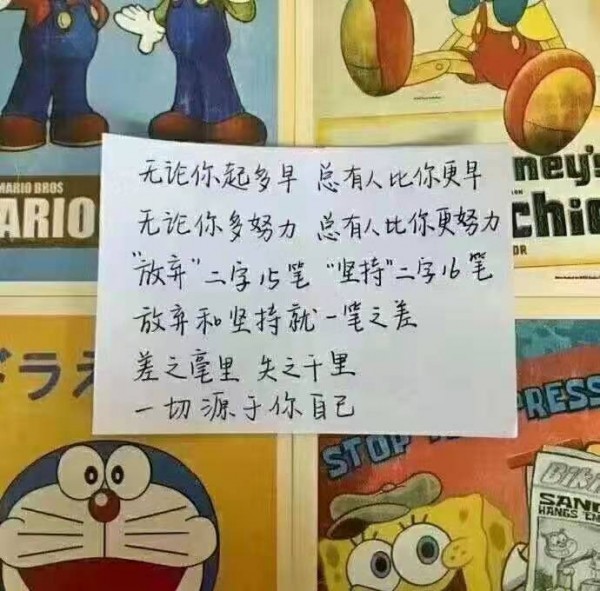 MARIO BROS
ARIO
ney's
chio
无论你起多早 总有人比你更早
无论你多努力 总有人比你更努力
"放弃"二字15笔 "坚持"二字16笔
放弃和坚持就一笔之差
差之毫里 失之千里
一切源于你自己
ドラえ
STOP
PRESS
SAND
HANGS 'EM